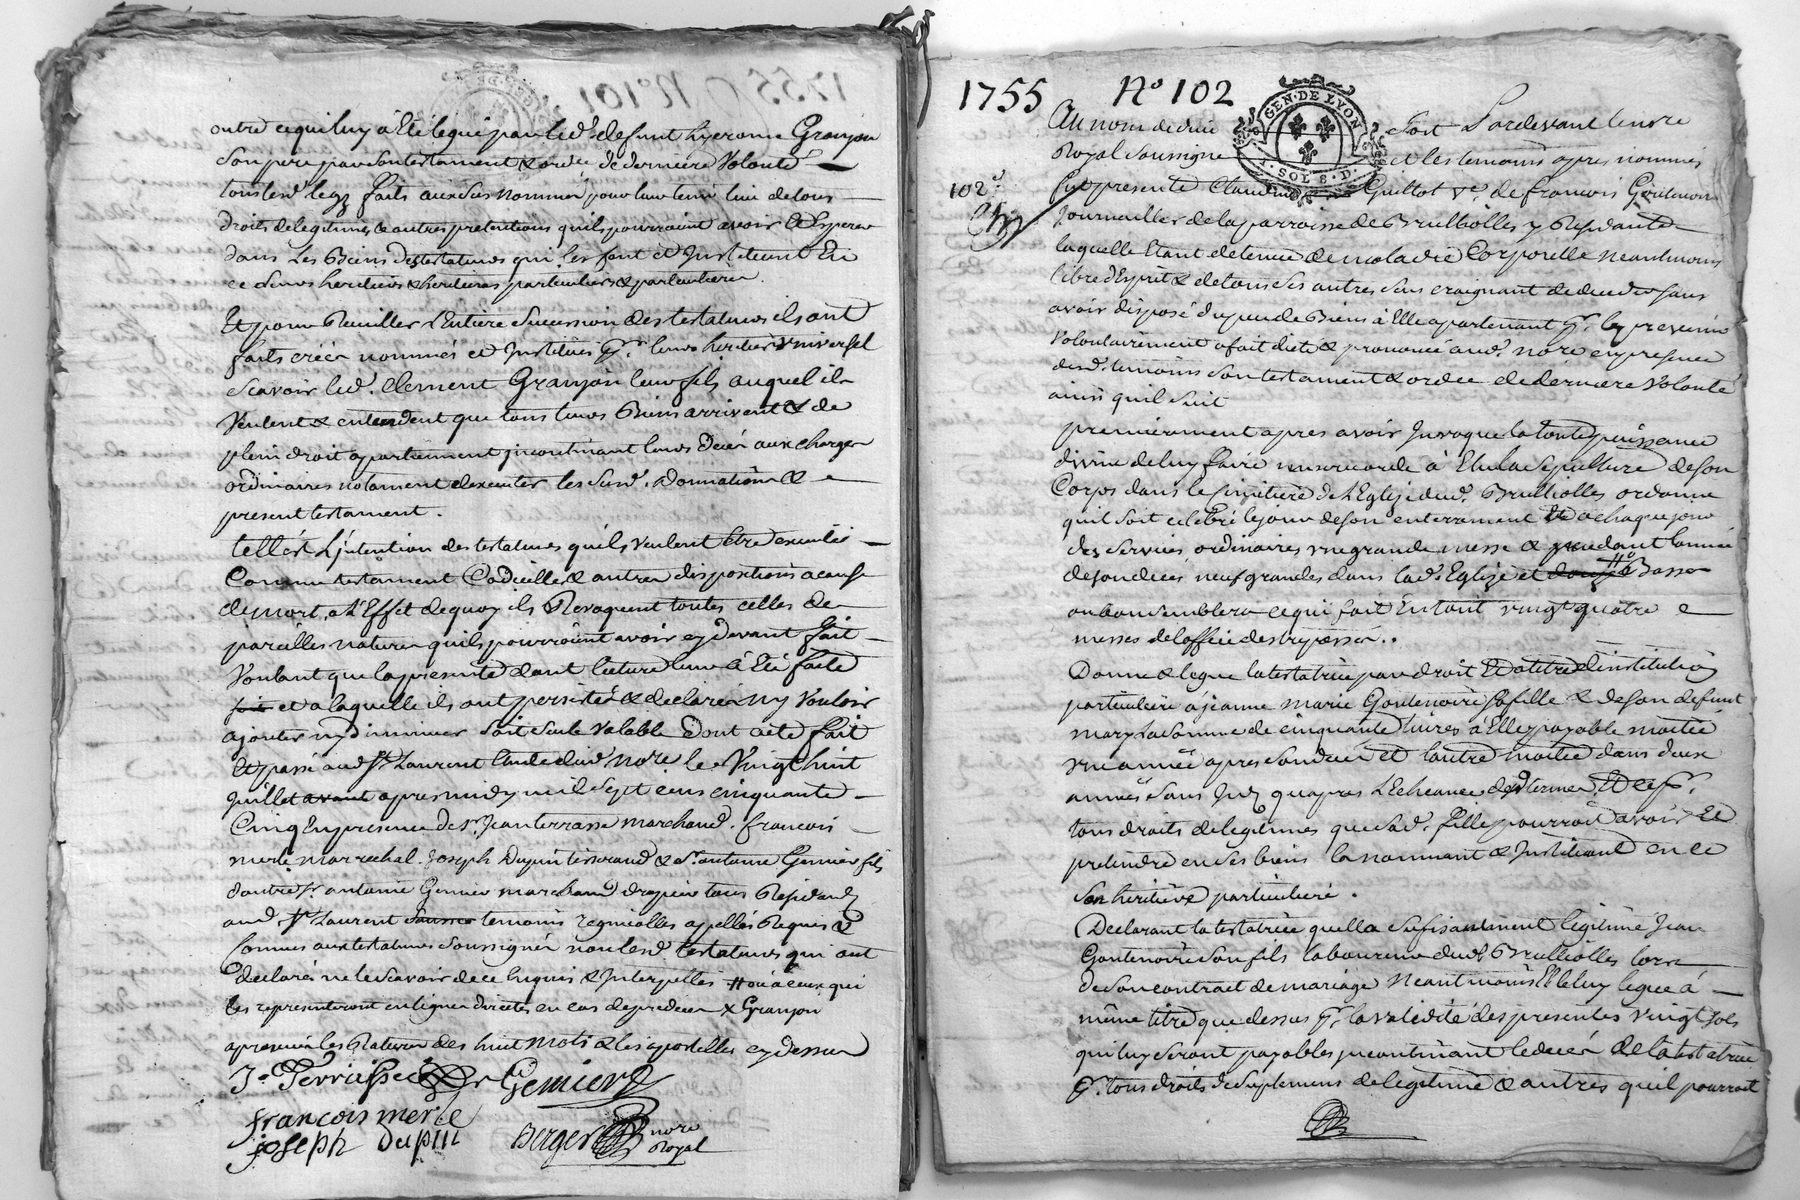 outre ce qui luy à Eté legué par led. defunt hyerome Granjon
Son pere par Son testament & ordce de derniere Volonté
tous lesd. legz faits aux Sus nommés pour leur tenir lieu de tous
droits de legitimes & autres pretentions quils pourroient avoir & Esperer
dans Les Biens des testateurs qui les font et Instituent En
ce Leurs heritiers & heritieres particuliers & particulieres.
Et pour Recuiller L'Entiere Sucession des testateurs ils ont
faits créés nommés et Institués pr. leur heritier Vniversel
Scavoir led. Clement Granjon leur fils auquel ils
Veulent & entendent que tous leurs Biens arrivent & de
plein droit apartiennent incontinant leurs Decés aux charges
ordinaires notament dexecuter les Susd. donnations &
present testament.
telle est L'jntention des testateurs quils veulent Etre executée
Comme testament Codicille & autres dispositions a cause
de mort, a L'Effet de quoy ils Revoquent toutes celles de
pareilles natures quils pourroient avoir cy devant fait
Voulant que la presente dont lecture leur à Eté faite
et a laquelle ils ont persisté & declarés ny Vouloir
ajouter ny diminuer Soit Seule Valable Dont acte fait
Et passé aud. St. Laurent Etude dud. nore. le Vingt huit
Juillet avant apres midy mil Sept cens cinquante
Cinq En presence de Sr. Jean terrasse marchand. francois
merle marechal. Joseph Dupuit tisserand & Sr. antoine Gemier fils
d'autre Sr. antoine Gemier marchand drapier tous Residants
aud. St. Laurent temoins regnicolles apellés Requis &
Connus aux testateurs Soussignés non lesd. testateurs qui ont
declarés ne le Scavoir de ce Enquis & Interpellés # ou à ceux qui
les representeront en ligne directe en cas de predeces x Granjon
aprouvé les Ratures des huit mots & les apostilles cy dessus
Jn. Terrasse Gemier
francois merle
joseph Dupui Berger nore Royal
1755 No 102
GEN. DE LYON
SOLS. D.
Au nom de dieu Soit Pardevant le nore
Royal Soussigné et les temoins apres nommés
102e.
fut presente Claudine Guillot Ve. de francois Goutenoire
Journallier de la parroisse de Brulliolles y Residante
laquelle Etant detenüe de maladie Corporelle neantmoins
libre d'Esprit & de tous Ses autres Sens craignant de deceder Sans
avoir disposé du peu de Biens à Elle apartenant pr. le prevenir
Volontairement a fait dicté & prononcé aud. nore en presence
desd. temoins Son testament & ordce de derniere Volonté
ainsi quil Suit
premierement apres avoir Invoqué la toute puissance
divine de luy faire misericorde à Elu La Sepulture de Son
Corps dans le Cimitiere de L'Eglize dud. Brulliolles ordonne
quil Soit celebré le jour de Son enterrement & a chaque jour
des Services ordinaires une grande messe & pendant l'année
de Son decés neuf grandes dans lad. Eglize et douze # Basses
ou bon Semblera ce qui fait En tout vingt quatre
messes de l'office des trepassés..
Donne & legue la testatrice par droit & a titre d'institution
particuliere a jeanne marie Goutenoire Sa fille & de Son defunt
mary La Somme de cinquante livres à Elle payable moitié
une année apres Son decés et l'autre moitié dans deux
années Sans Intz. qu'apres L'Echeance desd. termes Et ce pr.
tous droits de legitimes que Sad. fille pourroit avoir &
pretendre en Ses biens la nommant & Instituant en ce
Son heritiere particuliere.
Declarant la testatrice quelle a Sufisamment legitimé Jean
Goutenoire Son fils laboureur dud. Brulliolles lors
de Son contract de mariage Neantmoins Elle luy legue à
même titre que dessus pr. la validité des presentes Vingt Sols
qui luy Seront payables incontinant le decés de la testatrice
pr. tous droits de Suplement de legitime & autres quil pourroit